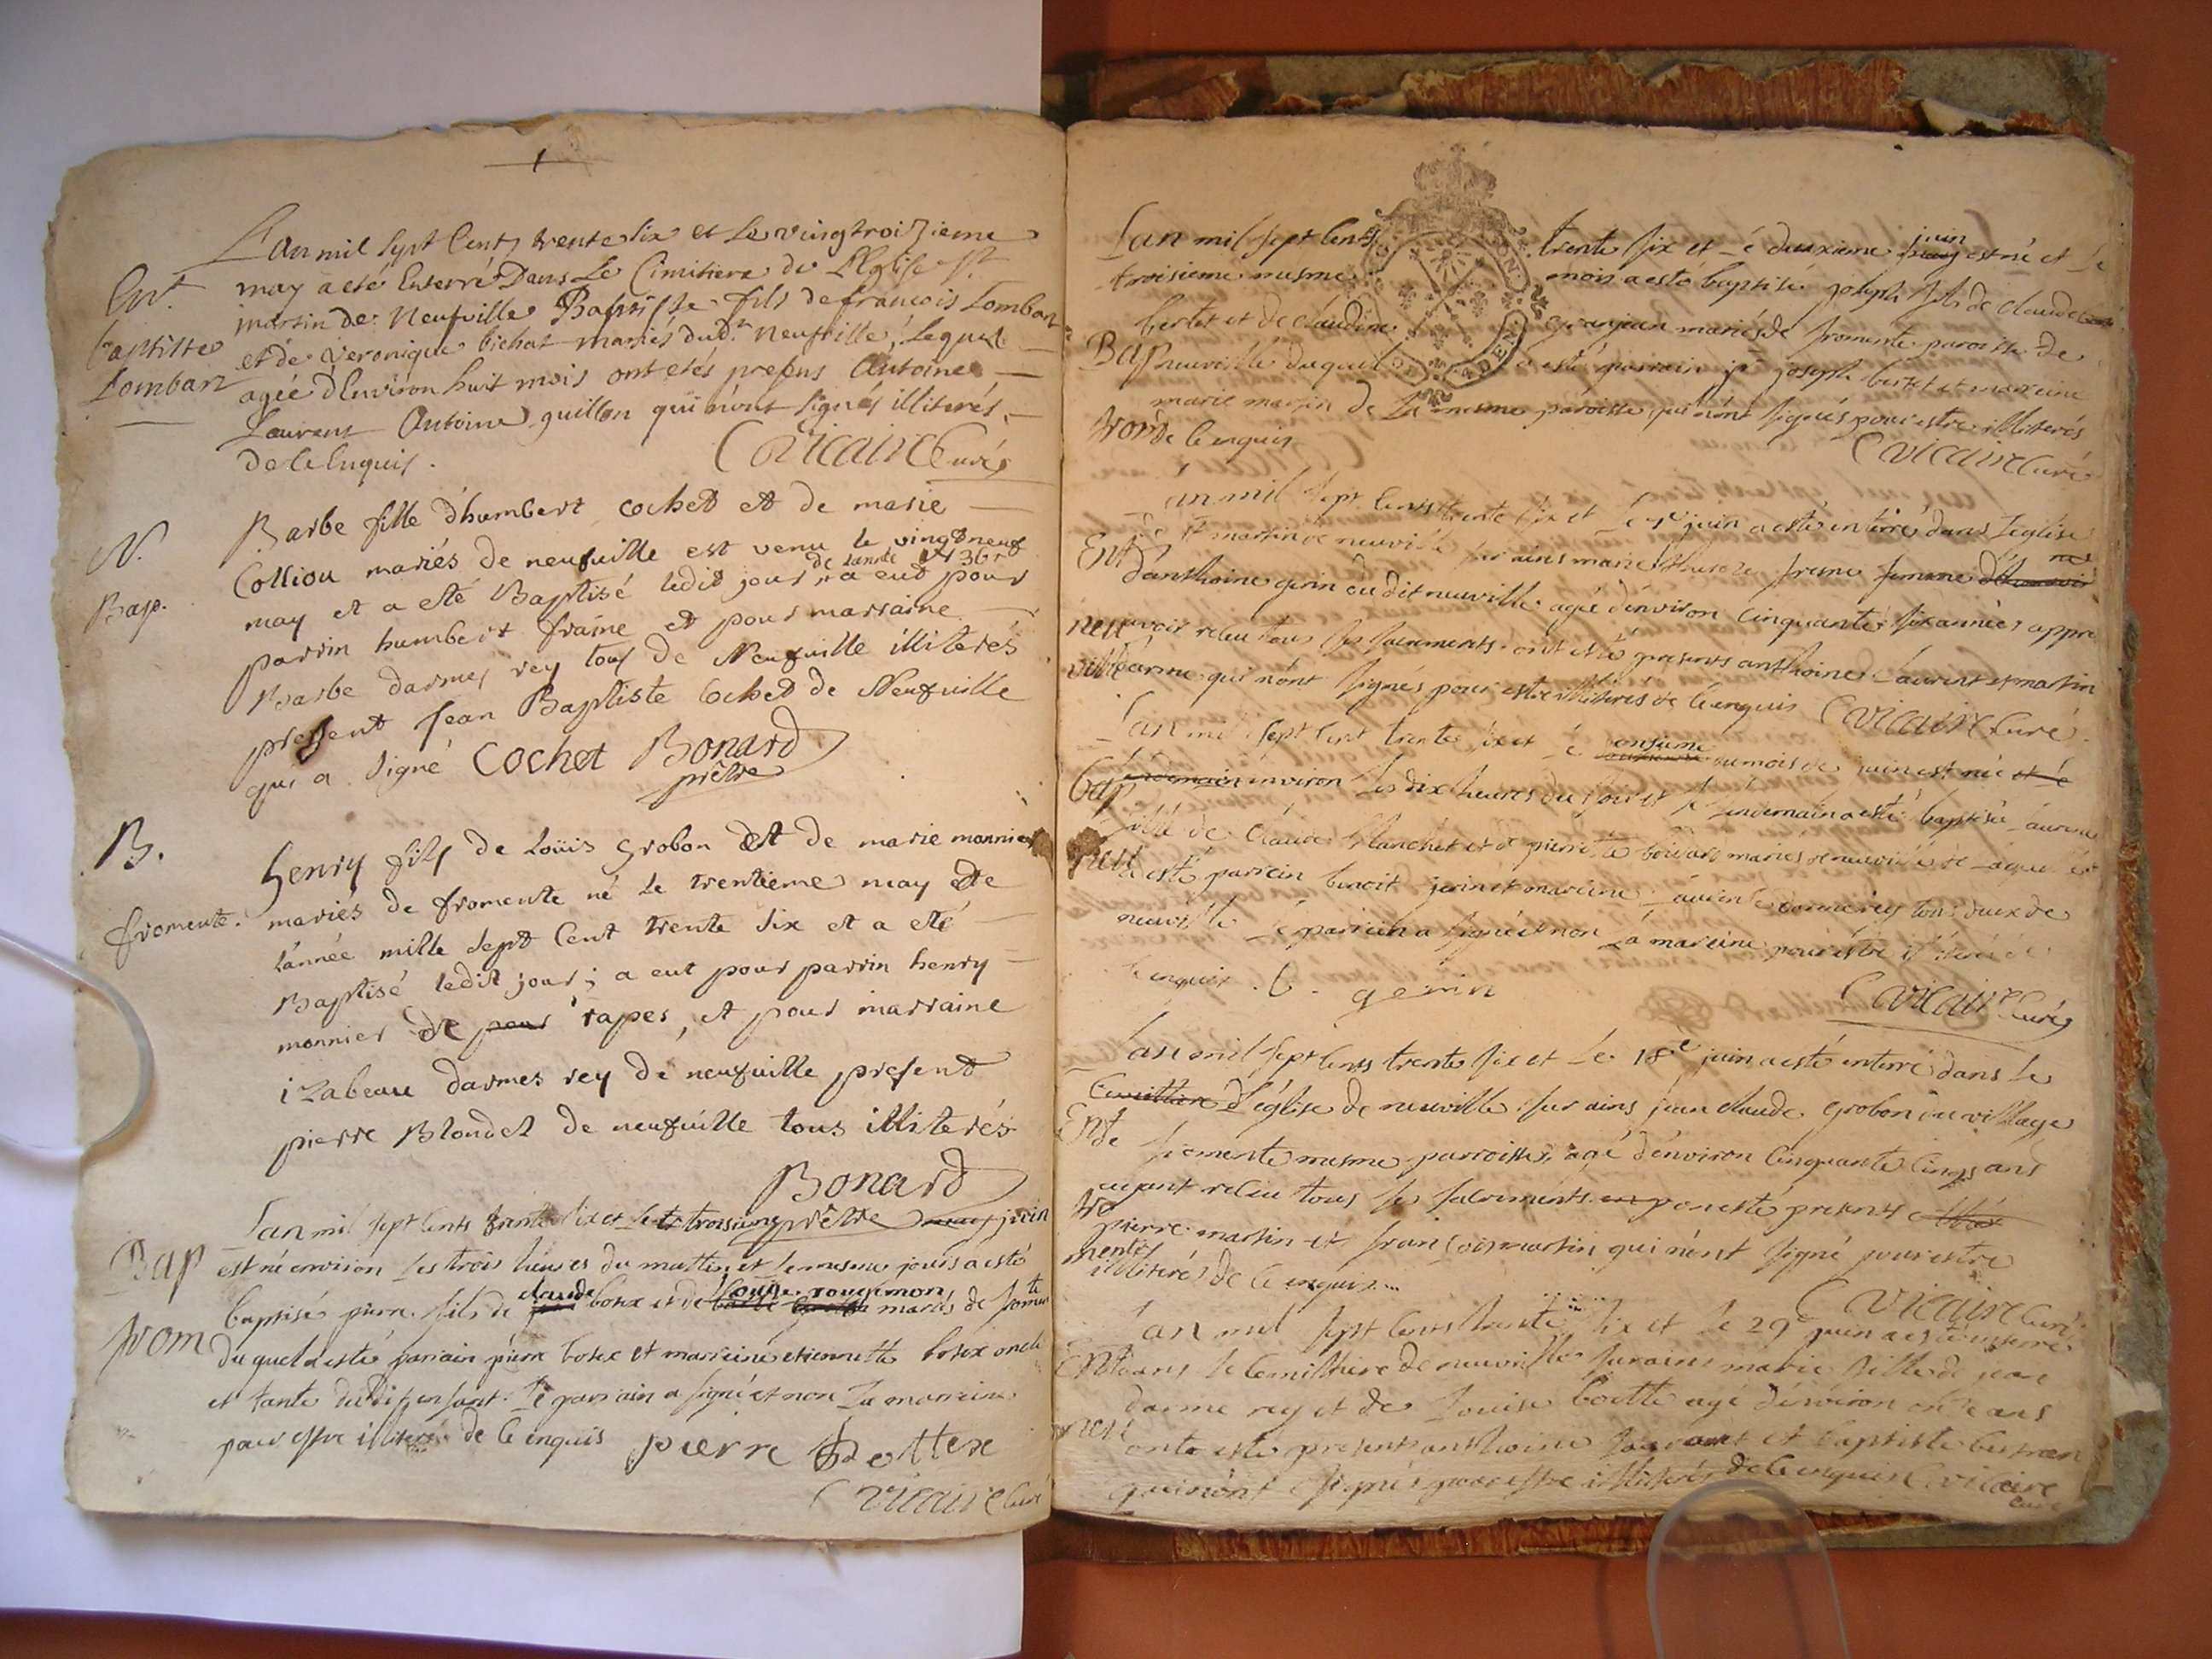 1
L'an mil sept Cents trente six et Le vingtroizieme
may a eté Enterré Dans Le Cimitiere de L'Eglise St
Ent.
martin de Neufville Baptiste fils de françois Lombart
baptiste
et de Veronique bichat mariés dud. Neufville, Lequel
Lombart
agée d'Environ huit mois ont etés presens Antoine
Laurent Antoine guillon qui n'ont signés illiterés
de ce Enquis.
C Vicaire Curé
N.
Barbe fille d'humbert cochet et de marie
Colliou mariés de neufuille est venu le vingt neuf
de l'année 1736
Bap.
may et a eté Baptisé ledit jour, a eut pour
parrin humbert fraine et pour marraine
Barbe darmes rey tous de Neufuille illiterés
present Jean Baptiste Cochet de Neufuille
qui a signé Cochet Bonard
prêtre
B.
henry fils de Loüis grobon et de marie monnier
fromente.
mariés de fromente né le trentieme may de
l'année mille sept Cent trente six et a eté
Baptisé ledit jour; a eut pour parrin henry
monnier de pour rapes, et pour marraine
izabeau darmes rey de neufuille present
pierre Blondel de neufuille tous illiterés
Bonard
prêtre
L'an mil sept cents trente six et le troisieme juin
Bap
est né environ Les trois heures du mattin et Le mesme jour a esté
claude louise rougemon
baptisé pierre fils de botex et de mariés de fromente
from
du quel a esté parrain pierre botex et marreine etiennette botex oncle
et tante dudit enfant. Le parrain a signé et non La marreine
pour estre illiteré de ce enquis pierre Bottex
C Vicaire Curé
L'an mil sept cents trente six et Le deuxieme juin est né et Le
troisieme mesme mois a esté baptisé joseph fils de claude
bertet et de claudine granjean mariés de fromente paroisse de
Bap
neuville duquel a esté parrain joseph bertet et marreine
marie martin de La mesme paroisse qui n'ont signés pour estre illiterés
from
de ce enquis
C Vicaire Curé
L'an mil sept cents trente six et Le juin a esté enterré dans L'eglise
de St martin de neuville sur ains marie fresne femme
Ent
d'anthoine gerin du dit neuville agée d'environ cinquante six années appre
neu
avoir receu tous ses sacrements. ont esté presents anthoine Laurent et martin
ville
qui n'ont signés pour estre illiterés de ce enquis C Vicaire Curé.
L'an mil sept cent trente six et Le onsieme du mois de juin est née et le
Bap
lendemain environ Les dix heures du soir et Le Lendemain a esté baptisée
fille de claude blanchet et de pierrette mariés de neuville de Laquelle
neu
a esté parrain benoit gerin et marreine darmerey tous deux de
neuville Le parrain a signé et non La marreine pour estre illiterée de
ce enquis. b. gerin
C Vicaire Curé
L'an mil sept cents trente six et Le 18e juin a esté enterré dans Le
Cemittiere d'église de neuville sur ains jean claude grobon du village
Ent
de fromente mesme parroisse, agé d'environ cinquante cinq ans
ayant receu tous ses sacrements ont esté presents
fro
pierre martin et françois martin qui n'ont signé pour estre
mente
illiterés de ce enquis...
C Vicaire Curé
L'an mil sept cents trente six et Le 29e juin a esté enterré
Ent
dans Le Cemittiere de neuville sur ains marie fille de jean
darme rey et de Louise bottte agé d'environ onze ans
neu
onts esté presents anthoine Laurent et baptiste bertran
qui n'ont signés pour estre illiterés de ce enquis C Vicaire
curé